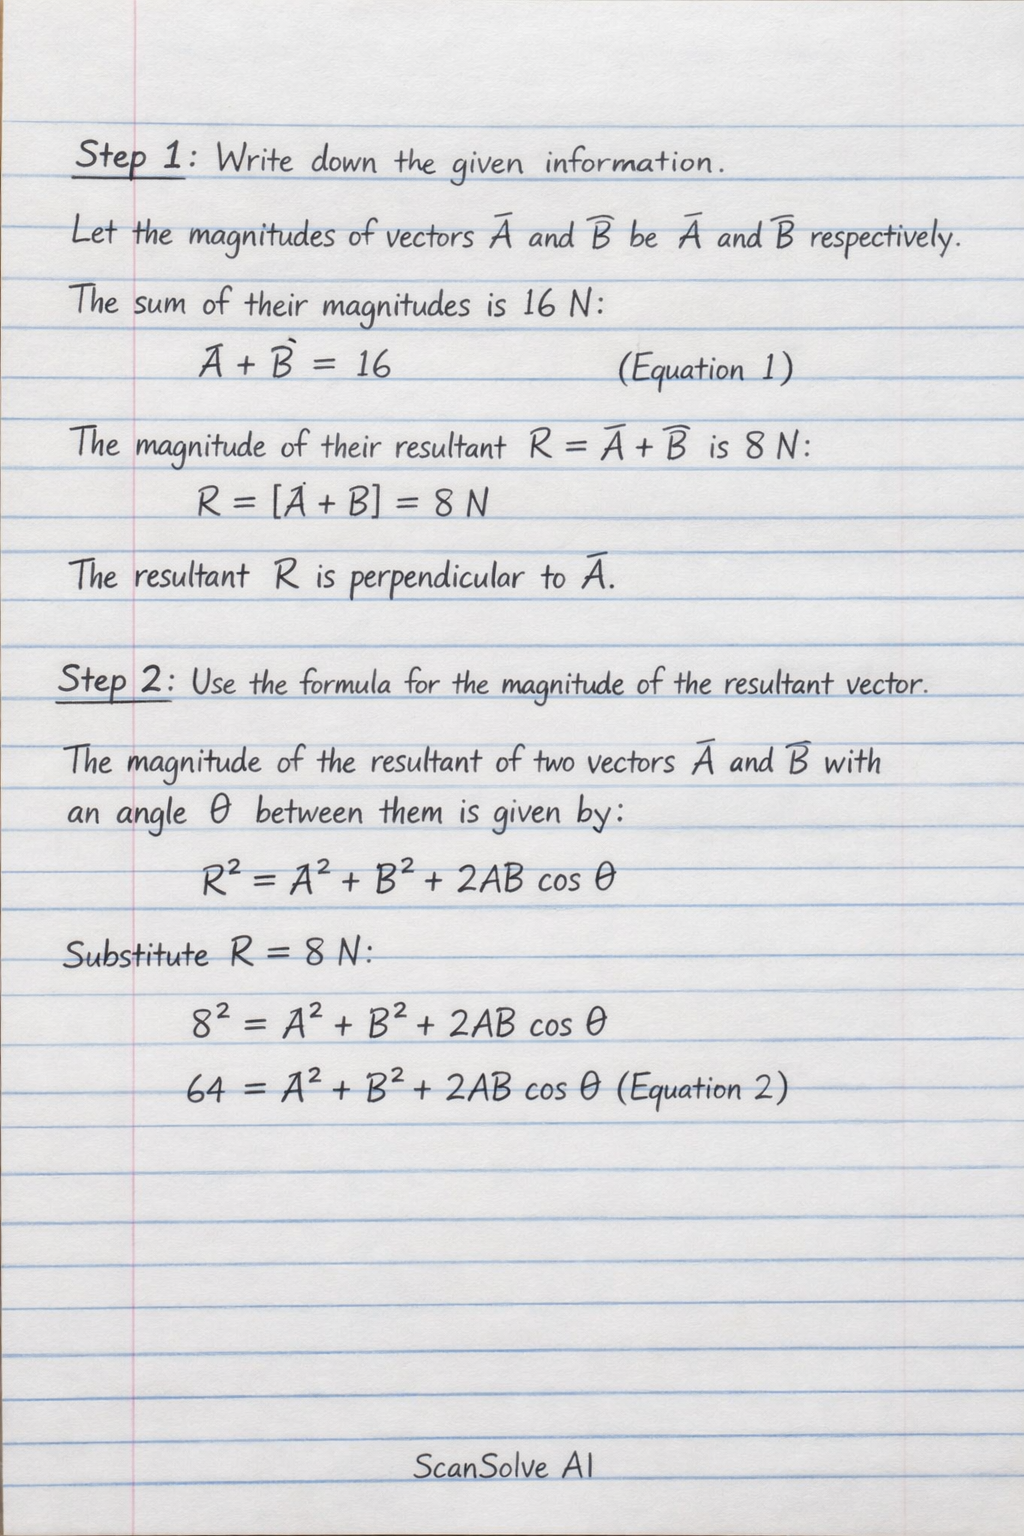 Step 1: Write down the given information.
Let the magnitudes of vectors A̅ and B̅ be A̅ and B̅ respectively.
The sum of their magnitudes is 16 N:
A̅ + B̀ = 16 (Equation 1)
The magnitude of their resultant R = A̅ + B̅ is 8 N:
R = [Ȧ + B] = 8 N
The resultant R is perpendicular to A̅.
Step 2: Use the formula for the magnitude of the resultant vector.
The magnitude of the resultant of two vectors A̅ and B̅ with
an angle θ between them is given by:
R² = A² + B² + 2AB cos θ
Substitute R = 8 N:
8² = A² + B² + 2AB cos θ
64 = A² + B² + 2AB cos θ (Equation 2)
ScanSolve AI